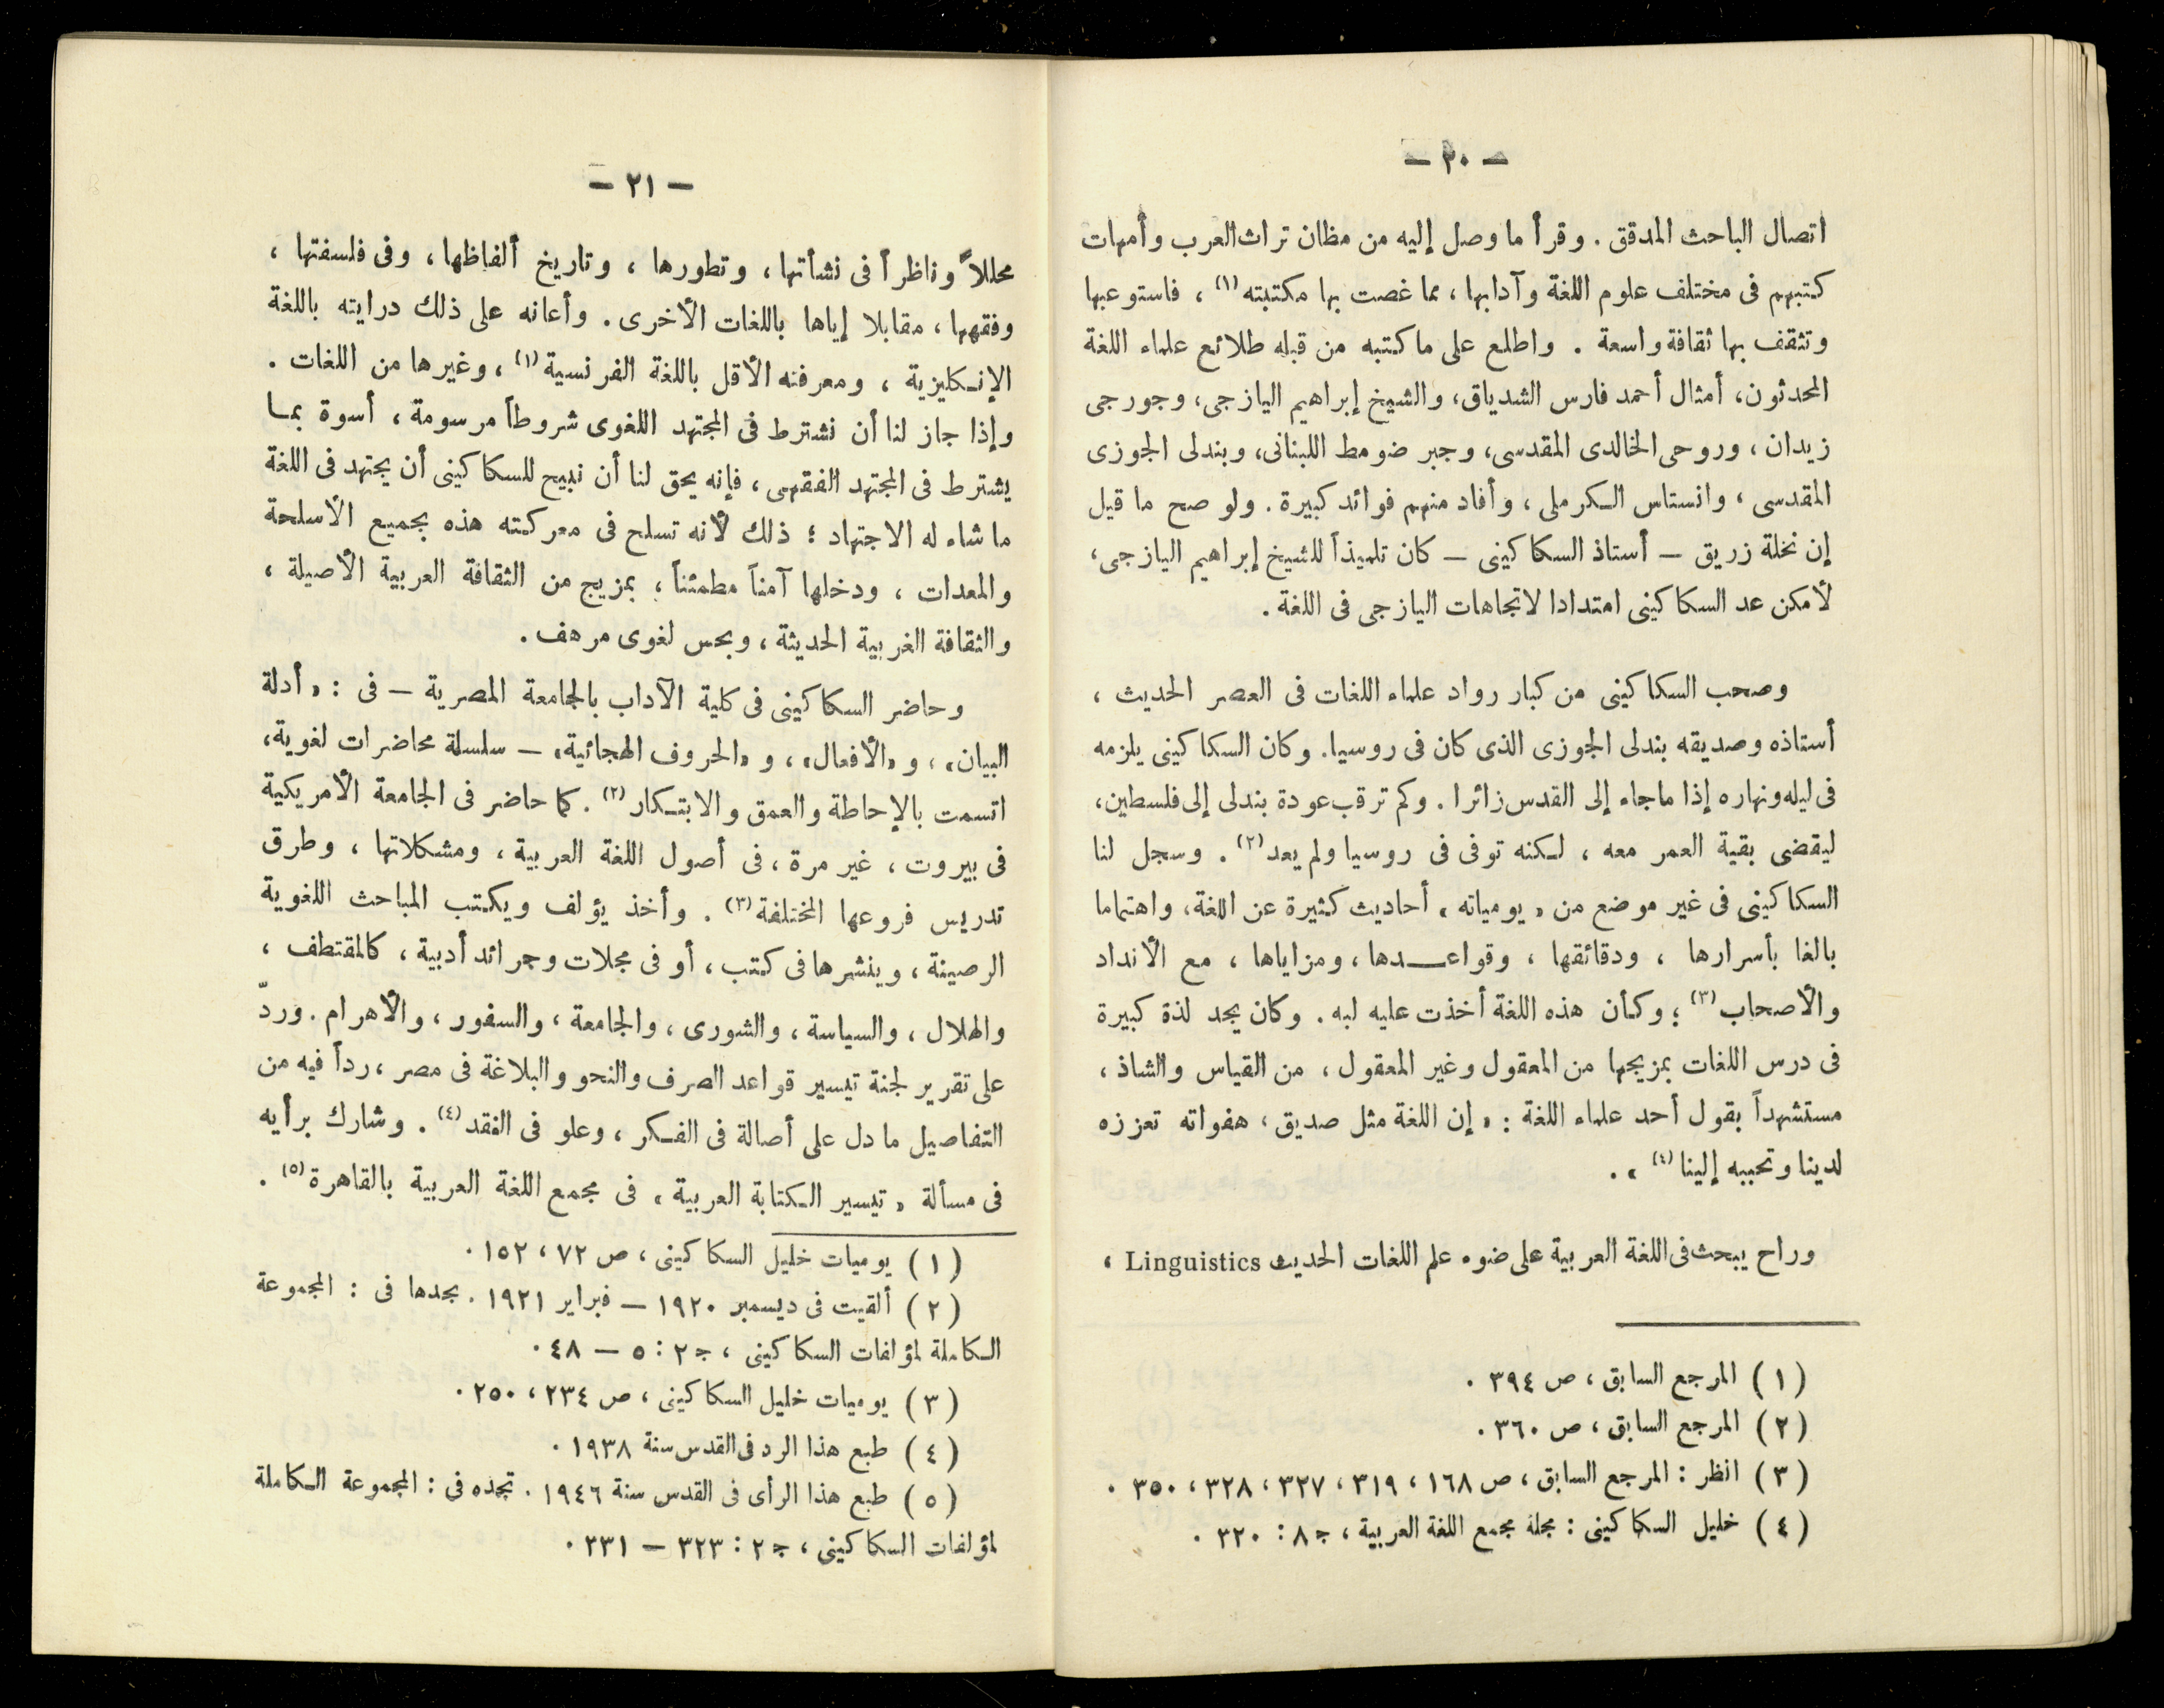 — ٢٠ —
اتصال الباحث المدقق . وقرأ ما وصل إليه من مظان تراث العرب وأمهات
كتبهم فى مختلف علوم اللغة وآدابها ، مما غصت بها مكتبته (١) ، فاستوعبها
وتثقف بها ثقافة واسعة . واطلع على ما كتبه من قبله طلائع علماء اللغة
المحدثون، أمثال أحمد فارس الشدياق، والشيخ إبراهيم اليازجى، وجورجى
زيدان ، وروحى الخالدى المقدسى، وجبر ضومط اللبنانى، وبندلى الجوزى
المقدسى ، وانستاس الكرملى ، وأفاد منهم فوائد كبيرة . ولو صح ما قيل
إن نخلة زريق — أستاذ السكاكينى — كان تلميذاً للشيخ إبراهيم اليازجى،
لأمكن عد السكاكينى امتدادا لاتجاهات اليازجى فى اللغة .
وصحب السكاكينى من كبار رواد علماء اللغات فى العصر الحديث ،
أستاذه وصديقه بندلى الجوزى الذى كان فى روسيا. وكان السكاكينى يلزمه
فى ليله ونهاره إذا ما جاء إلى القدس زائرا . وكم ترقب عودة بندلى إلى فلسطين،
ليقضى بقية العمر معه ، لكنه توفى فى روسيا ولم يعد (٢) . وسجل لنا
السكاكينى فى غير موضع من « يومياته » أحاديث كثيرة عن اللغة، واهتماما
بالغا بأسرارها ، ودقائقها ، وقواعدها ، ومزاياها ، مع الأنداد
والأصحاب (٣) ؛ وكأن هذه اللغة أخذت عليه لبه . وكان يجد لذة كبيرة
فى درس اللغات بمزيجها من المعقول وغير المعقول ، من القياس والشاذ ،
مستشهداً بقول أحد علماء اللغة : « إن اللغة مثل صديق ، هفواته تعززه
لدينا وتحببه إلينا (٤) » .
وراح يبحث فى اللغة العربية على ضوء علم اللغات الحديث Linguistics ،
(١) المرجع السابق ، ص ٣٩٤ .
(٢) المرجع السابق ، ص ٣٦٠ .
(٣) انظر : المرجع السابق ، ص ١٦٨ ، ٣١٩ ، ٣٢٧ ، ٣٢٨ ، ٣٥٠ .
(٤) خليل السكاكينى : مجلة مجمع اللغة العربية ، ج ٨ : ٣٢٠ .
— ٢١ —
محللاً وناظراً فى نشأتها ، وتطورها ، وتاريخ ألفاظها ، وفى فلسفتها ،
وفقهها ، مقابلا إياها باللغات الأخرى . وأعانه على ذلك درايته باللغة
الإنكليزية ، ومعرفته الأقل باللغة الفرنسية (١) ، وغيرها من اللغات .
وإذا جاز لنا أن نشترط فى المجتهد اللغوى شروطاً مرسومة ، أسوة بما
يشترط فى المجتهد الفقهى ، فإنه يحق لنا أن نبيح للسكاكينى أن يجتهد فى اللغة
ما شاء له الاجتهاد ؛ ذلك لأنه تسلح فى معركته هذه بجميع الأسلحة
والمعدات ، ودخلها آمناً مطمئناً ، بمزيج من الثقافة العربية الأصيلة ،
والثقافة الغربية الحديثة ، وبحس لغوى مرهف .
وحاضر السكاكينى فى كلية الآداب بالجامعة المصرية — فى : « أدلة
البيان» ، و «الأفعال» ، و «الحروف الهجائية» — سلسلة محاضرات لغوية،
اتسمت بالإحاطة والعمق والابتكار (٢) . كما حاضر فى الجامعة الأمريكية
فى بيروت ، غير مرة ، فى أصول اللغة العربية ، ومشكلاتها ، وطرق
تدريس فروعها المختلفة (٣) . وأخذ يؤلف ويكتب المباحث اللغوية
الرصينة ، وينشرها فى كتب ، أو فى مجلات وجرائد أدبية ، كالمقتطف ،
والهلال ، والسياسة ، والشورى ، والجامعة ، والسفور ، والأهرام . وردّ
على تقرير لجنة تيسير قواعد الصرف والنحو والبلاغة فى مصر ، رداً فيه من
التفاصيل ما دل على أصالة فى الفكر ، وعلو فى النقد (٤) . وشارك برأيه
فى مسألة « تيسير الكتابة العربية » فى مجمع اللغة العربية بالقاهرة (٥) .
(١) يوميات خليل السكاكينى ، ص ٧٢ ، ١٥٢ .
(٢) ألقيت فى ديسمبر ١٩٢٠ — فبراير ١٩٢١ . بجدها فى : المجموعة
الكاملة لمؤلفات السكاكينى ، ج ٢ : ٥ — ٤٨ .
(٣) يوميات خليل السكاكينى ، ص ٢٣٤ ، ٢٥٠ .
(٤) طبع هذا الرد فى القدس سنة ١٩٣٨ .
(٥) طبع هذا الرأى فى القدس سنة ١٩٤٦ . تجده فى : المجموعة الكاملة
لمؤلفات السكاكينى ، ج ٢ : ٣٢٣ — ٣٣١ .